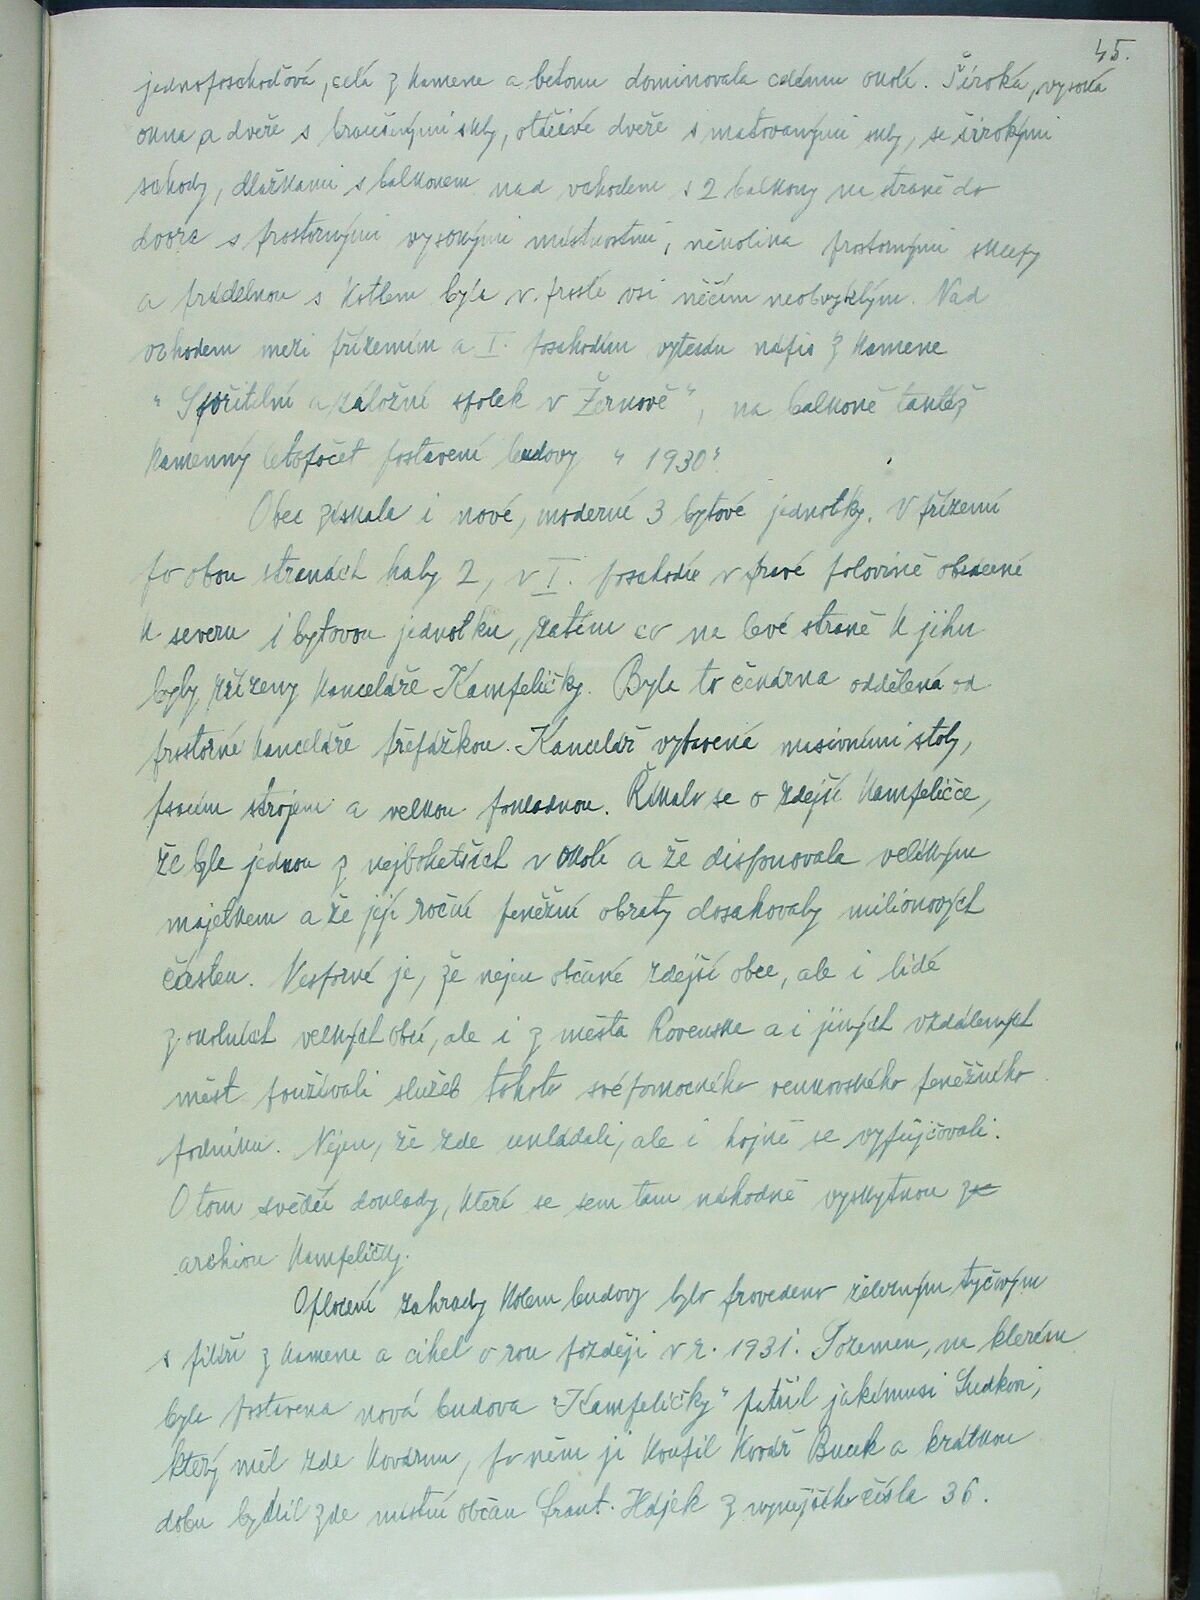 45.
jednoposchoďová, celá z kamene a betonu dominovala celému okolí. Široká, vysoká
okna a dveře s broušenými skly, otáčivé dveře s matovanými skly, se širokými
schody, dlažkami s balkonem nad vchodem s 2 balkony na straně do
dvora s prostornými vysokými místnostmi, několika prostornými sklepy
a prádelnou s kotlem byla v prosté vsi něčím neobvyklým. Nad
vchodem mezi přízemím a I. poschodím vytesán nápis z kamene
" Spořitelní a záložní spolek v Žernově", na balkoně taktéž
kamenný letopočet postavení budovy " 1930".
Obec získala i nové, moderní 3 bytové jednotky. V přízemí
po obou stranách haly 2, v I. poschodí v pravé polovině obrácené
k severu 1 bytovou jednotku, zatím co na levé straně k jihu
byly zřízeny kanceláře Kampeličky. Byla to čekárna oddělená od
prostorné kanceláře přepážkou. Kancelář vybavená masivními stoly,
psacím strojem a velkou pokladnou. Říkalo se o zdejší kampeličce,
že byla jednou z nejbohatších v okolí a že disponovala velikým
majetkem a že její roční peněžní obraty dosahovaly milionových
částek. Nesporné je, že nejen občané zdejší obce, ale i lidé
z okolních velkých obcí, ale i z města Rovenska a i jiných vzdálených
měst používali služeb tohoto svépomocného venkovského peněžního
podniku. Nejen, že zde ukládali, ale i hojně se vypůjčovali.
O tom svědčí doklady, které se sem tam náhodně vyskytnou ze
archivu kampeličky.
Oplocení zahrady kolem budovy bylo provedeno železným tyčovým
s pilíři z kamene a cihel o rok později v r. 1931. Pozemek, na kterém
byla postavena nová budova "Kampeličky" patřil jakémusi Sudkovi,
který měl zde kovárnu, po něm ji koupil kovář Bucek a krátkou
dobu bydlil zde místní občan Frant. Hájek z nynějšího čísla 36.